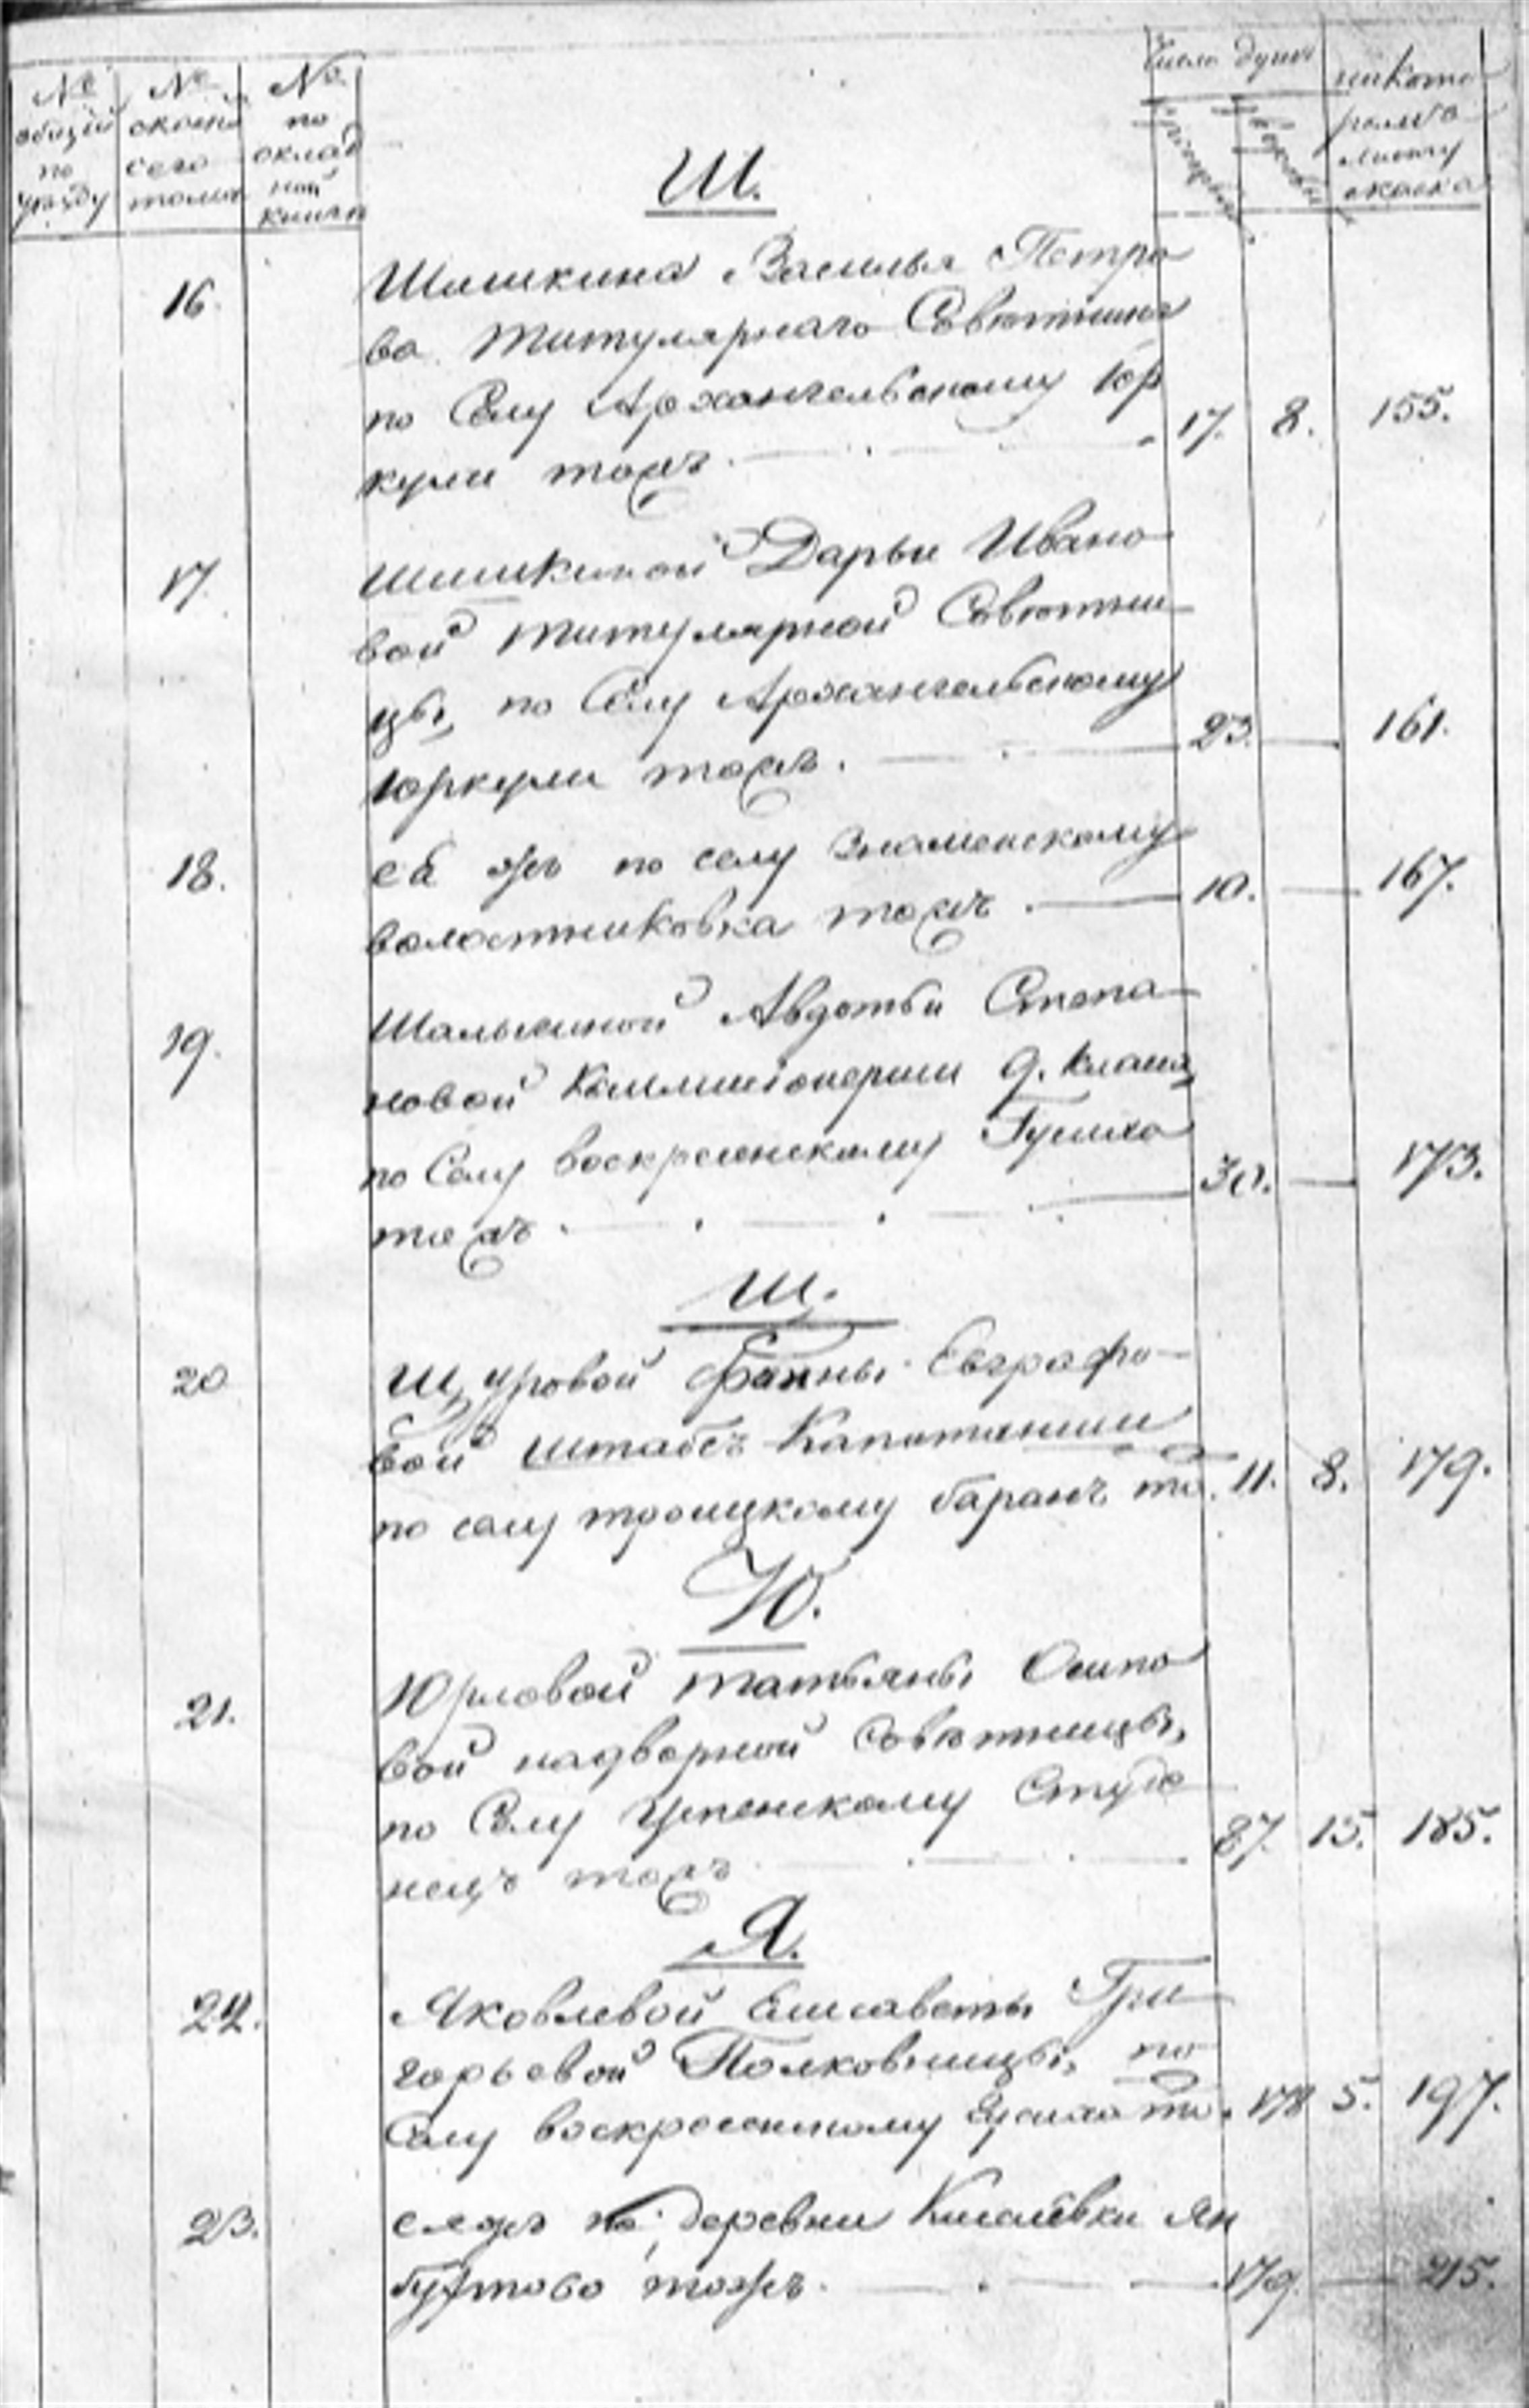 № общій по уѣзду
№ сказки сего тома
№ по окладной книги
Число душъ
на которомъ листу сказка
Ш.
16. Шишкина Василья Петро
ва титулярнаго Совѣтника
по Селу Архангельскому Юр
кули тожъ. 17. 8. 155.
17. Шишкиной Дарьи Ивано
вой титулярной Совѣтни
цы, по Селу Архангельскому
Юркули тожъ. 23. 161.
18. ея жъ по селу Знаменскому
волостниковка тожъ. 10. 167.
19. Авдотьи Степа
новой Коммиціонерши 9. класа,
по Селу воскресенскому
тожъ. 30. 173.
Щ.
20 Щуровой Анны Евграфо
вой штабсъ Капитанши
по селу троицкому баранъ то. 11. 8. 179.
Ю.
21. Юрловой татьяны Осипо
вой надворной Совѣтницы,
по Селу Успенскому Студе
нецъ тожъ 87. 15. 185.
Я.
22. Яковлевой Елисаветы Гри
горьевой Полковницы, по
Селу воскресенскому то. 178 5. 197.
23. деревни Ян
бухтово тожъ. 179. 215.